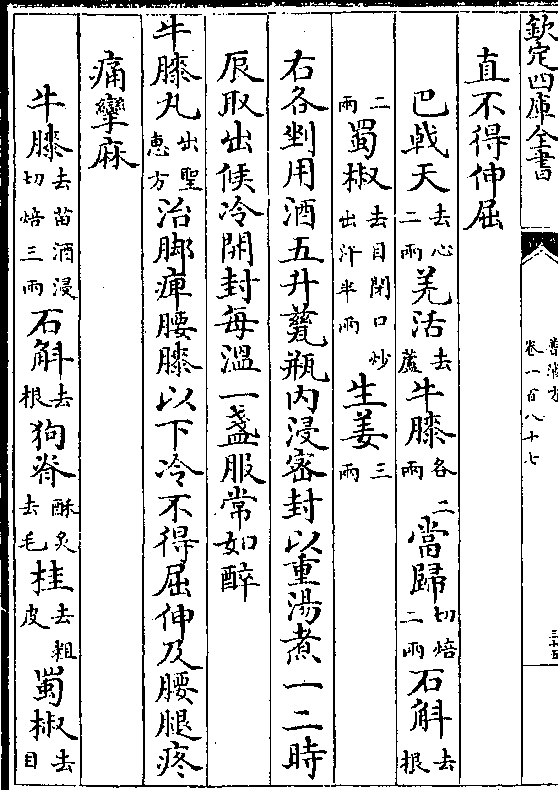 欽定四庫全書
普濟方
卷一百八十七
直不得伸屈
巴戟天去心二兩 羌活去蘆 牛膝各二兩 當歸切焙二兩 石斛去根
二兩 蜀椒去目閉口炒出汗半兩 生姜三兩
右各剉用酒五升甆瓶内浸宻封以重湯煮一二時
辰取出候冷開封每溫一盞服常如醉
牛膝丸出聖惠方 治脚痺腰膝以下冷不得屈伸及腰腿疼
痛攣麻
牛膝去苗酒浸切焙三兩 石斛去根 狗脊酥炙去毛 桂去粗皮 蜀椒去目